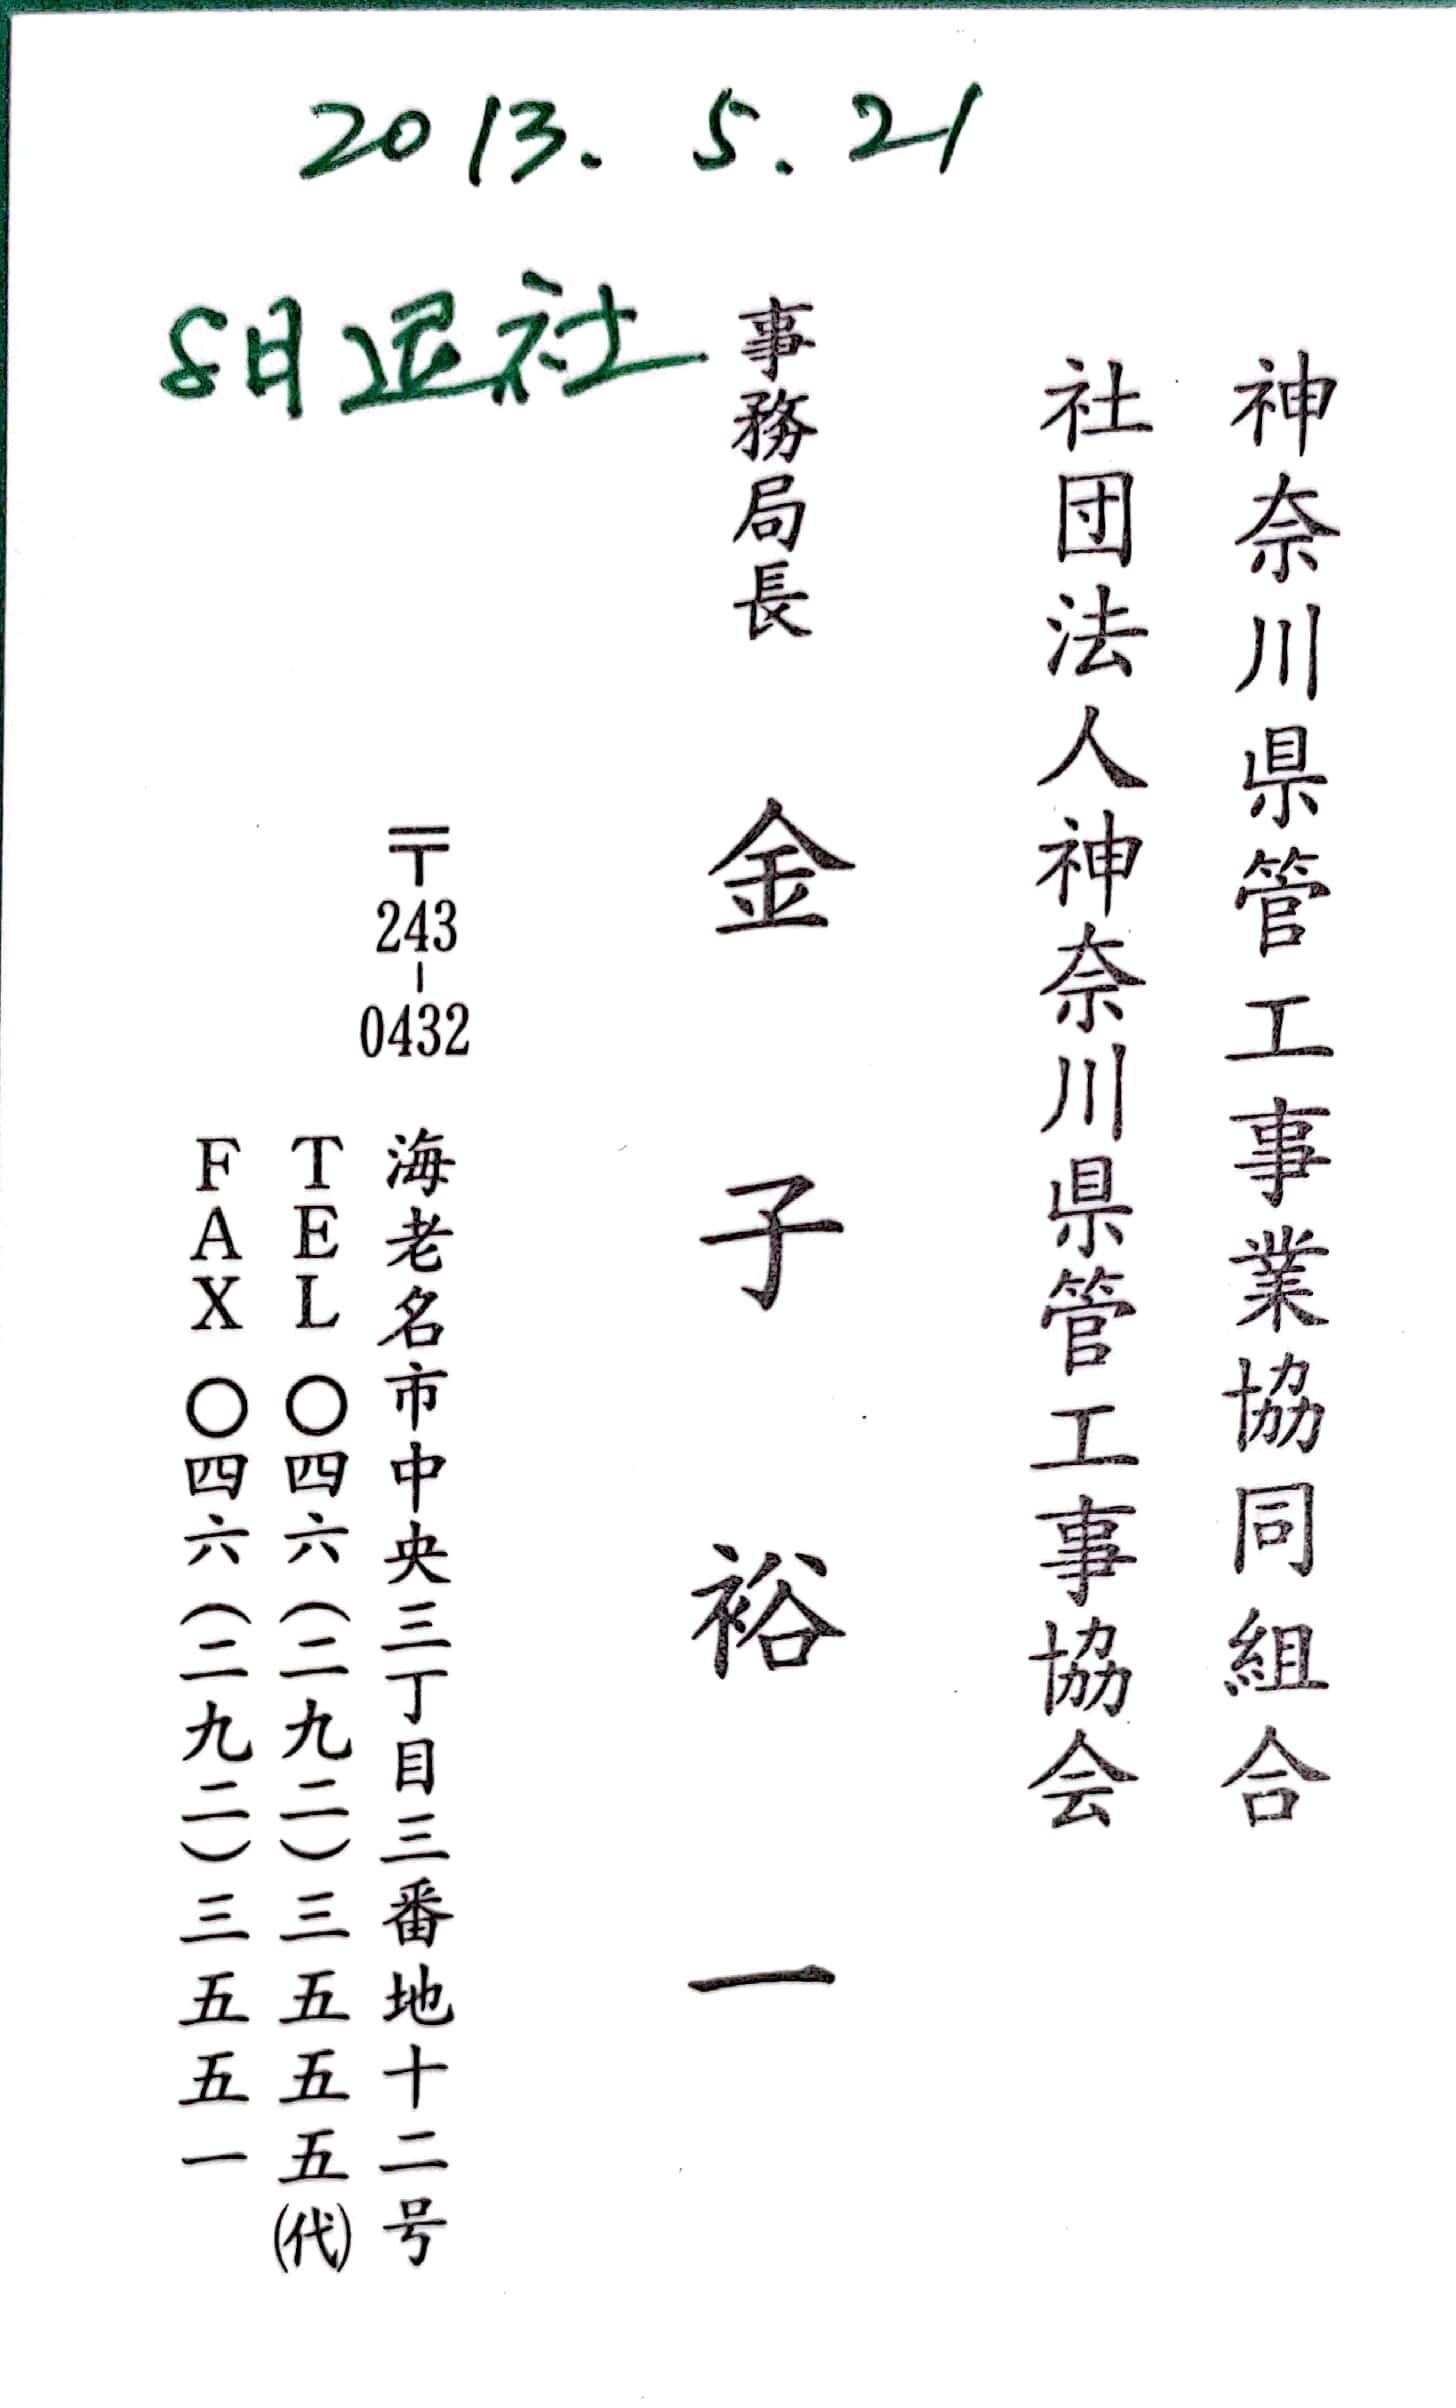 2013. 5. 21
8月退社
神奈川県管工事業協同組合
社団法人神奈川県管工事協会
事務局長 金子裕一
〒243-0432 海老名市中央三丁目三番地十二号
TEL 〇四六(二九二)三五五五(代)
FAX 〇四六(二九二)三五五一